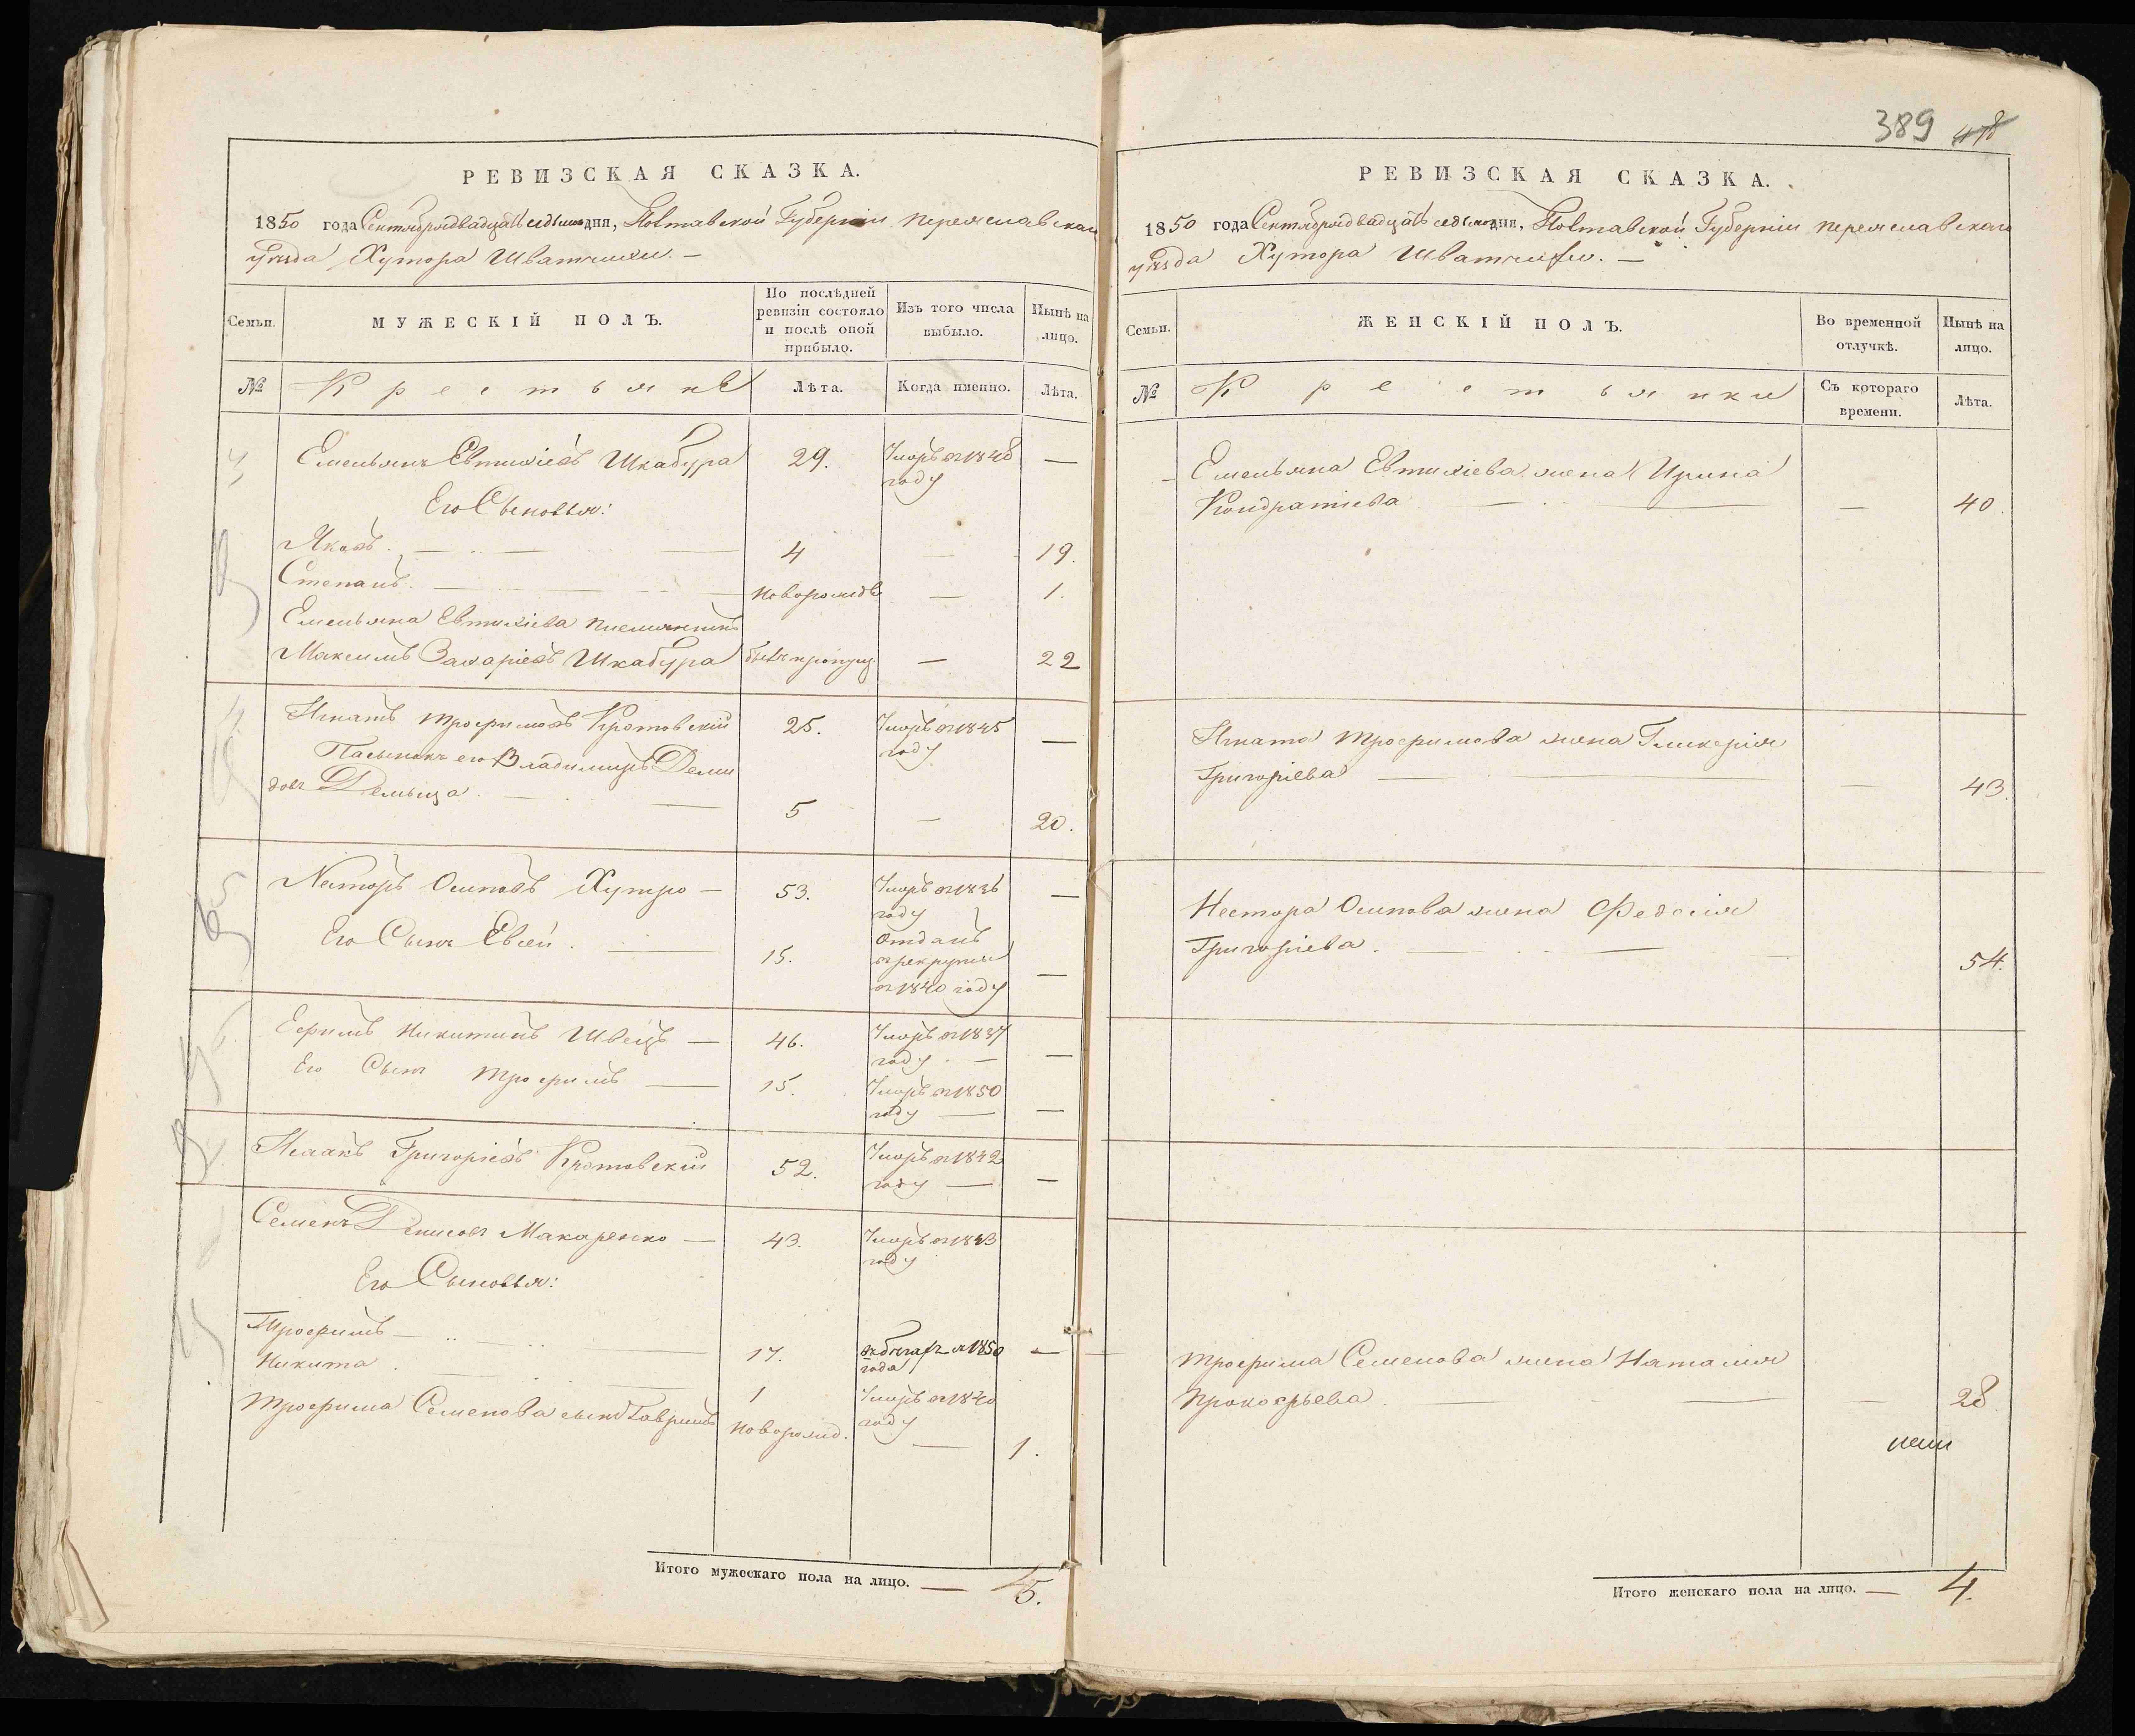 РЕВИЗСКАЯ СКАЗКА.
1850 года Сентября двадцать седьмого дня, Полтавской Губерніи Переяславскаго
уѣзда Хутора
Семьи.
МУЖЕСКІЙ ПОЛЪ.
По послѣдней ревизіи состояло и послѣ оной прибыло.
Изъ того числа выбыло.
Нынѣ на лицо.
№
Крестьяне
Лѣта.
Когда именно.
Лѣта.
Емельянъ Евтихіевъ Шкабура 29. Умеръ въ 1848 —
году
Его Сыновья:
Яковъ. — 4 — 19.
Степанъ. — новорожд — 1.
Емельяна Евтихіева племянникъ
Максимъ Захаріевъ Шкабура былъ пропущ — 22
Игнатъ Трофимовъ Кротовскій 25. Умеръ въ 1845 —
году
Пасынокъ его Владимиръ Деми
довъ 5 — 20.
Несторъ Осиповъ Хутро — 53. Умеръ въ 1836 —
году
Его Сынъ Евсей. — 15. Отданъ
в рекруты —
въ 1840 году
Ефимъ Никитинъ Швецъ — 46. Умеръ въ 1837
году — —
Его Сынъ Трофимъ — 15. Умеръ въ 1850
году — —
Исаакъ Григоріевъ Кротовскій 52. Умеръ въ 1842
году — —
Семенъ Денисовъ Макаренко — 43. Умеръ въ 1843
году
Его Сыновья:
Трофимъ — 17. 1850 —
года
Никита. — 1 Умеръ въ 1840
году
Трофима Семенова сынъ Гавриилъ новорожд. — 1.
Итого мужескаго пола на лицо. — 5.
389 418
РЕВИЗСКАЯ СКАЗКА.
1850 года Сентября двадцать седьмого дня, Полтавской Губерніи Переяславскаго
уѣзда Хутора
Семьи.
ЖЕНСКІЙ ПОЛЪ.
Во временной отлучкѣ.
Нынѣ на лицо.
№
Крестьянки
Съ котораго времени.
Лѣта.
Емельяна Евтихіева жена Ирина
Кондратіева — — 40.
Игната Трофимова жена Гликерія
Григоріева — — 43.
Нестора Осипова жена Федосія
Григоріева. — 54.
Трофима Семенова жена Наталія
Прокофьева. — — 28.
Итого женскаго пола на лицо. — 4.